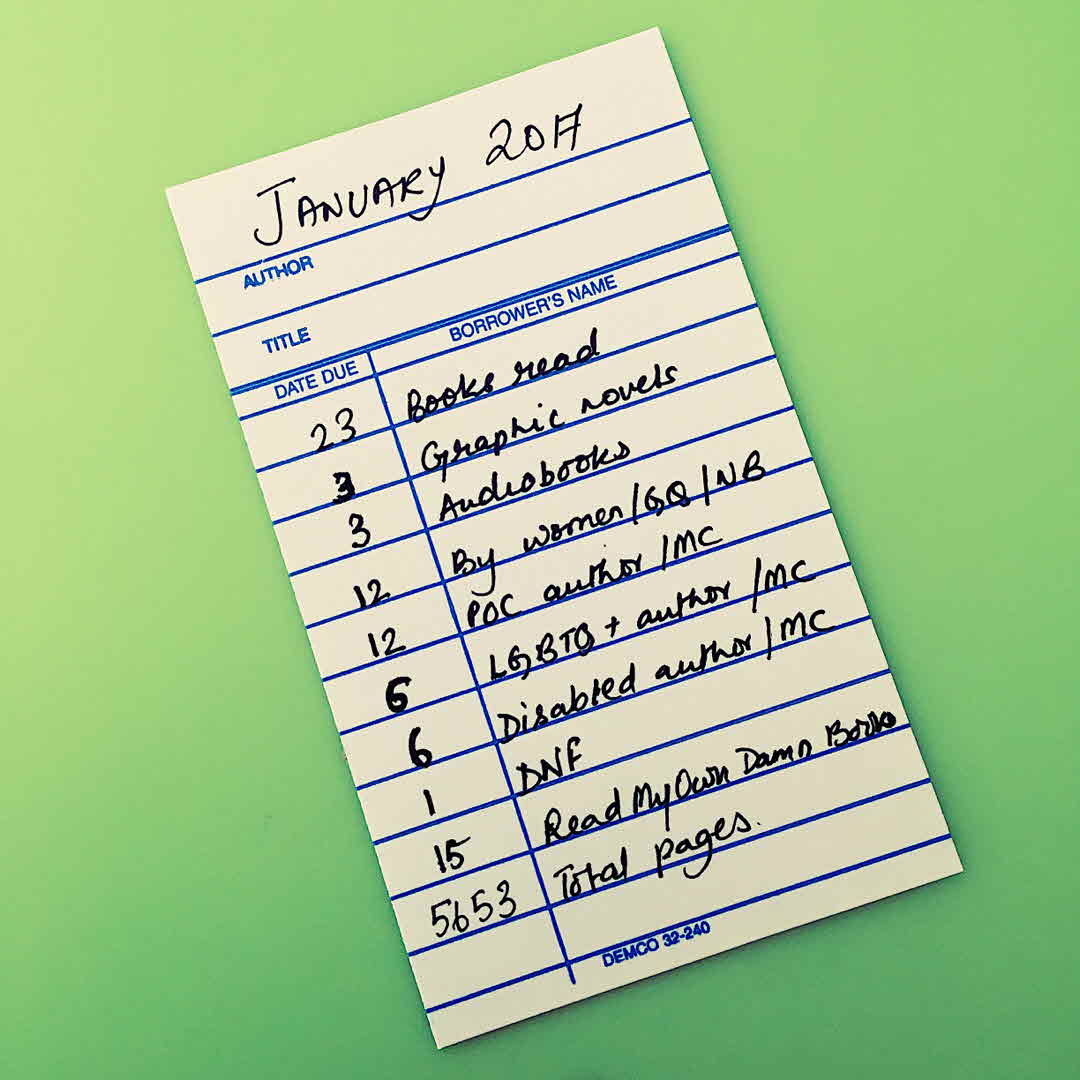 JANUARY 2017
AUTHOR
TITLE
DATE DUE BORROWER'S NAME
23 Books read
3 Graphic novels
3 Audiobooks
12 By women/GQ/NB
12 POC author/MC
6 LGBTQ+ author/MC
6 Disabled author/MC
1 DNF
15 Read My Own Damn Books
5653 Total pages.
DEMCO 32-240